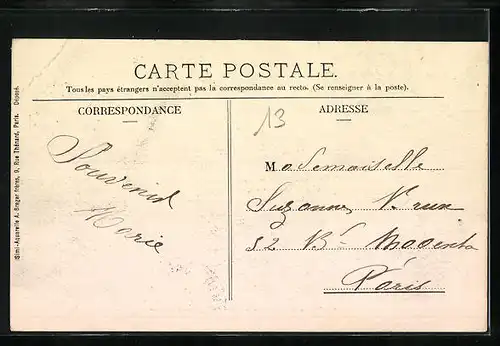 CARTE POSTALE.
Tous les pays étrangers n'acceptent pas la correspondance au recto. (Se renseigner à la poste).
CORRESPONDANCE
ADRESSE
13
Souvenir
Marie
Mademoiselle
Suzanne
52 Bd Magenta
Paris
(Simi-Aquarelle A. Breger frères, 9, Rue Thénard, Paris. Déposé.